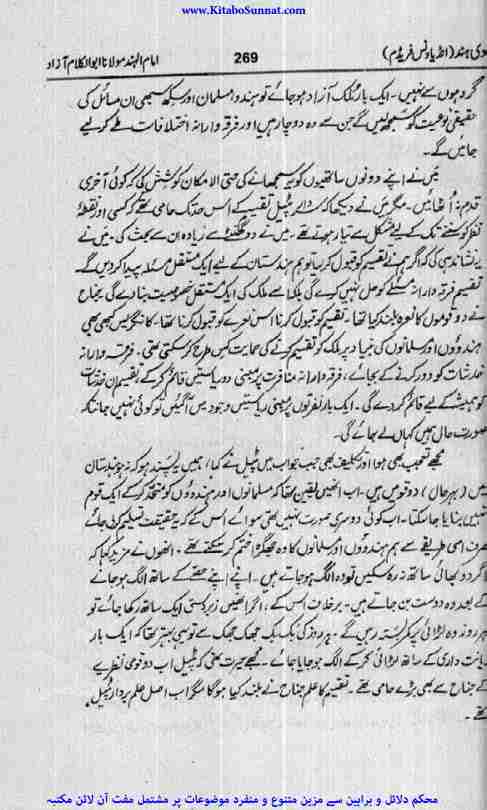 www.KitaboSunnat.com
امام الہند مولانا ابوالکلام آزاد 269 دی ہند (انڈیا ونس فریڈم)
گروہوں سے نہیں۔ ایک بار ملک آزاد ہو جائے تو ہندو، مسلمان اور سکھ سبھی ان مسائل کی
حقیقی نوعیت کو سمجھ لیں گے جن سے وہ دوچار ہیں اور فرقہ وارانہ اختلافات طے کر لیے
جائیں گے۔
میں نے اپنے دونوں ساتھیوں کو یہ سمجھانے کی حتی الامکان کوشش کی کہ کوئی آخری
قدم نہ اُٹھائیں۔ مگر میں نے دیکھا کہ سردار پٹیل تقسیم کے اس حد تک حامی تھے کہ کسی اور نقطۂ
نظر کو سننے تک کے لیے مشکل سے تیار ہوتے تھے۔ میں نے دو گھنٹے سے زیادہ ان سے بحث کی۔ میں نے
یہ نشاندہی کی کہ اگر ہم نے تقسیم کو قبول کر لیا تو ہم ہندستان کے لیے ایک مستقل مسئلہ پیدا کر دیں گے۔
تقسیم فرقہ وارانہ مسئلے کو حل نہیں کرے گی بلکہ اسے ملک کی ایک مستقل خصوصیت بنا دے گی۔ جناح
نے دو قوموں کا نعرہ بلند کیا تھا۔ تقسیم کو قبول کرنا اس نعرے کو قبول کرنا تھا۔ کانگریس کبھی بھی
ہندوؤں اور مسلمانوں کی بنیاد پر ملک کو تقسیم کرنے کی حمایت کس طرح کر سکتی تھی۔ فرقہ وارانہ
خدشات کو دور کرنے کے بجائے، فرقہ وارانہ منافرت پر مبنی دو ریاستیں قائم کر کے تقسیم ان خدشات
کو ہمیشہ کے لیے قائم کر دے گی۔ ایک بار نفرتوں پر مبنی ریاستیں وجود میں آ گئیں تو کوئی نہیں جانتا کہ
صورت حال ہمیں کہاں لے جائے گی۔
مجھے تعجب بھی ہوا اور تکلیف بھی جب جواب میں پٹیل نے کہا، ہمیں یہ پسند ہو کہ نہ ہو ہندستان
میں (بہرحال) دو قومیں ہیں۔ اب انھیں یقین تھا کہ مسلمانوں اور ہندوؤں کو متحد کر کے ایک قوم
نہیں بنایا جا سکتا۔ اب کوئی دوسری صورت نہیں تھی سوائے اس کے کہ یہ حقیقت تسلیم کر لی جائے
صرف اسی طریقے سے ہم ہندوؤں اور مسلمانوں کا وہ جھگڑا ختم کر سکتے تھے۔ انھوں نے مزید کہا کہ
اگر دو بھائی ساتھ نہ رہ سکیں تو وہ الگ ہو جاتے ہیں۔ اپنے اپنے حصے کے ساتھ الگ ہو جانے
کے بعد وہ دوست بن جاتے ہیں۔ برخلاف اس کے، اگر انھیں زبردستی ایک ساتھ رکھا جائے تو
ہر روز وہ لڑائی پر کمر بستہ رہیں گے۔ ہر روز کی بک بک جھک جھک سے تو یہی بہتر تھا کہ ایک بار
یانت داری کے ساتھ لڑائی کر کے الگ ہو جایا جائے۔ مجھے حیرت تھی کہ پٹیل اب دو قومی نظریے
کے جناح سے بھی بڑے حامی تھے۔ تقسیم کا علم جناح نے بلند کیا ہوگا مگر اب اصل علم بردار پٹیل
تھے۔
محکم دلائل و براہین سے مزین متنوع و منفرد موضوعات پر مشتمل مفت آن لائن مکتبہ